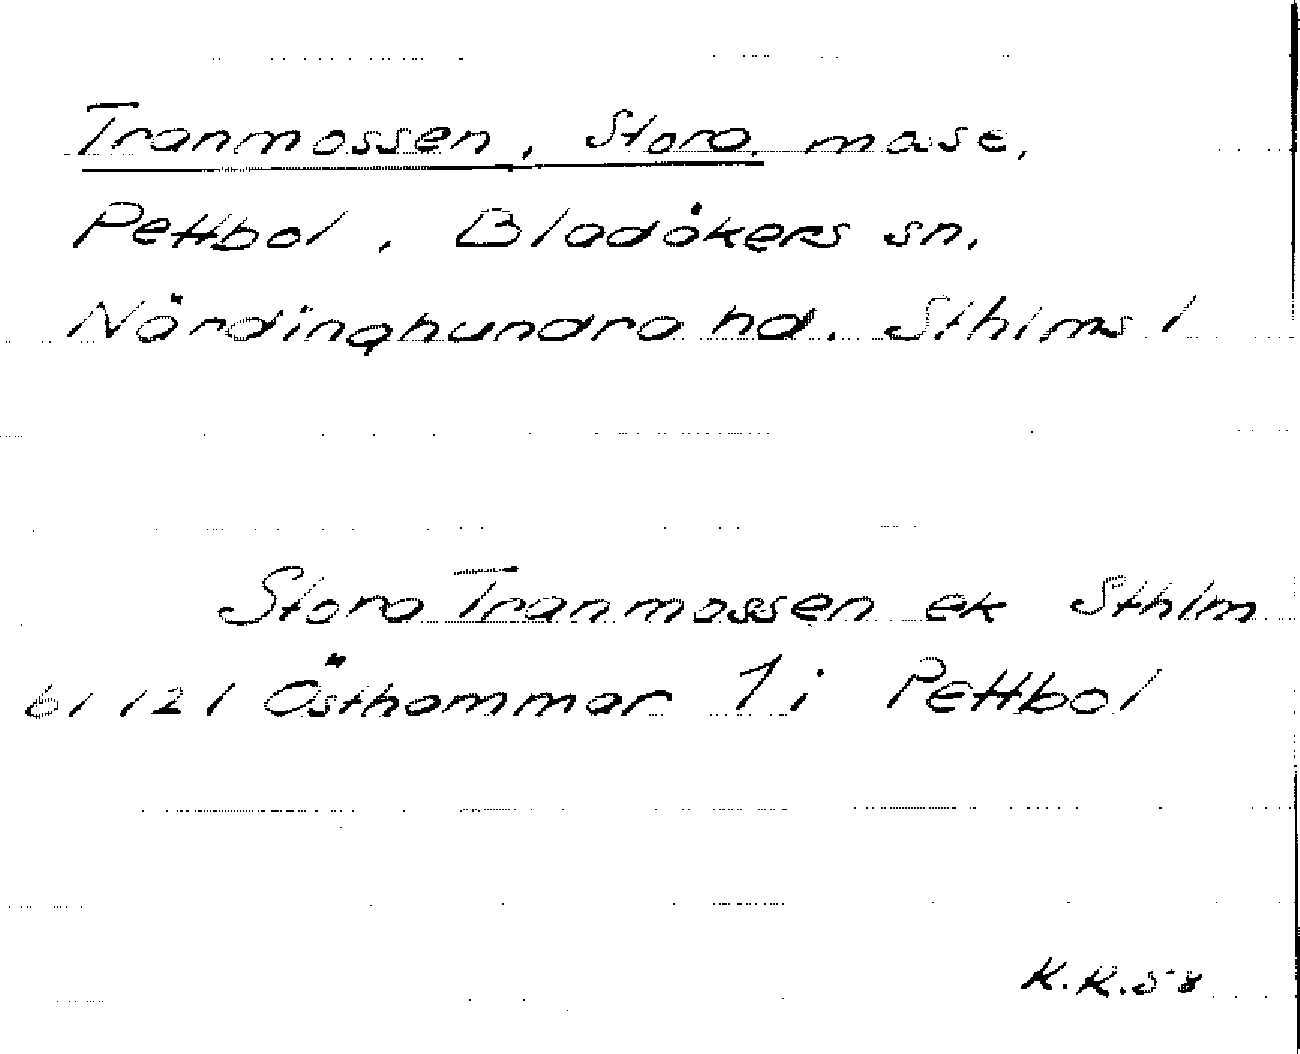 Tranmossen, Stora, mosse,
Pettbol, Bladåkers sn,
Närdinghundra hd. Sthlms l
Stora Tranmossen ek Sthlm
bl 121 Östhammar 1 i Pettbol
K.K.58